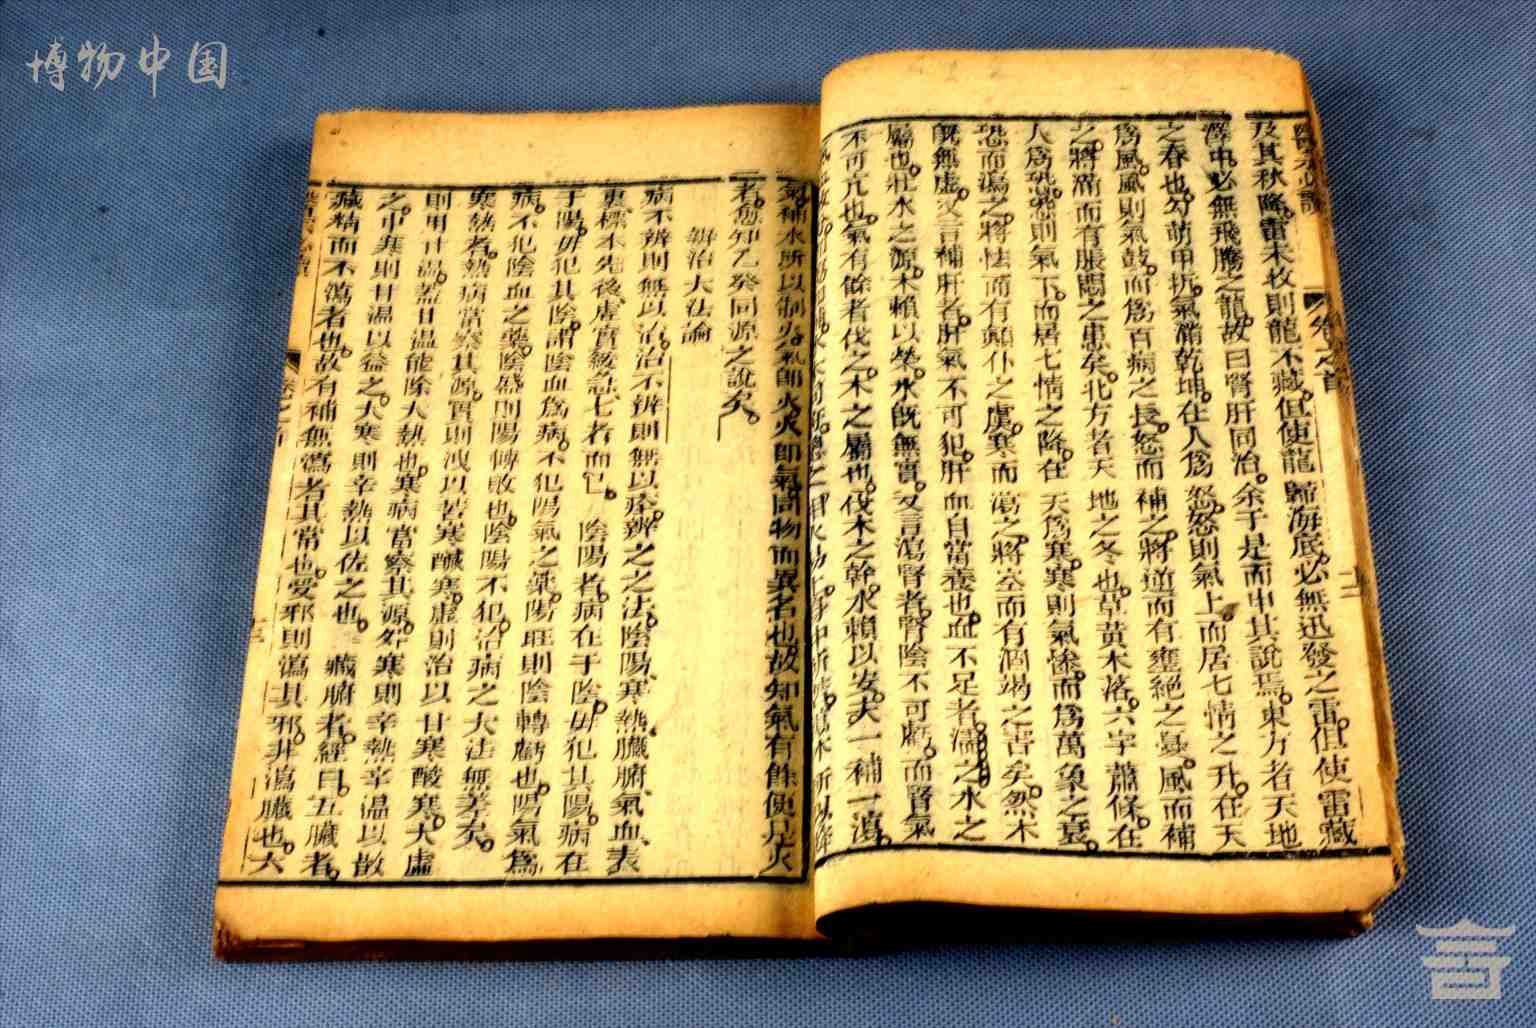 博物中国
及其秋降雷未收則龍不藏但使龍歸海底必無迅發之雷但使雷藏
澤中必無飛騰之龍故曰腎肝同治余于是而申其說焉東方者天地
之春也勾萌甲拆氣滿乾坤在人爲怒怒則氣上而居七情之升在天
爲風風則氣鼓而爲百病之長怒而補之將逆而有壅絕之憂風而補
之將滿而有脹悶之患矣北方者天地之冬也草黃木落六字蕭條在
人爲恐恐則氣下而居七情之降在天爲寒寒則氣慘而爲萬象之衰
恐而瀉之將怯而有顛仆之虞寒而瀉之將空而有涸竭之害矣然木
既無虛又言補肝者肝氣不可犯肝血自當養也血不足者濡之水之
屬也壯水之源木賴以榮水既無實又言瀉腎者腎陰不可虧而腎氣
不可亢也氣有餘者伐之木之屬也伐木之幹水賴以安夫一補一瀉
卷之首
氣補水所以制火氣即火火即氣同物而異名也故知氣有餘便是火
者愈知乙癸同源之說矣
辨治大法論
病不辨則無以治治不辨則無以痊辨之之法陰陽寒熱臟腑氣血表
裏標本先後虛實緩急七者而已 陰陽者病在于陰毋犯其陽病在
于陽毋犯其陰謂陰血爲病不犯陽氣之藥陽旺則陰轉虧也陽氣爲
病不犯陰血之藥陰盛則陽轉敗也陰陽不犯治病之大法無差矣
寒熱者熱病當察其源實則洩以苦寒鹹寒虛則治以甘寒酸寒大虛
則用甘溫蓋甘溫能除大熱也寒病當察其源外寒則辛熱辛溫以散
之中寒則甘溫以益之大寒則辛熱以佐之也 臟腑者經曰五臟者
藏精而不瀉者也故有補無瀉者其常也受邪則瀉其邪非瀉臟也六